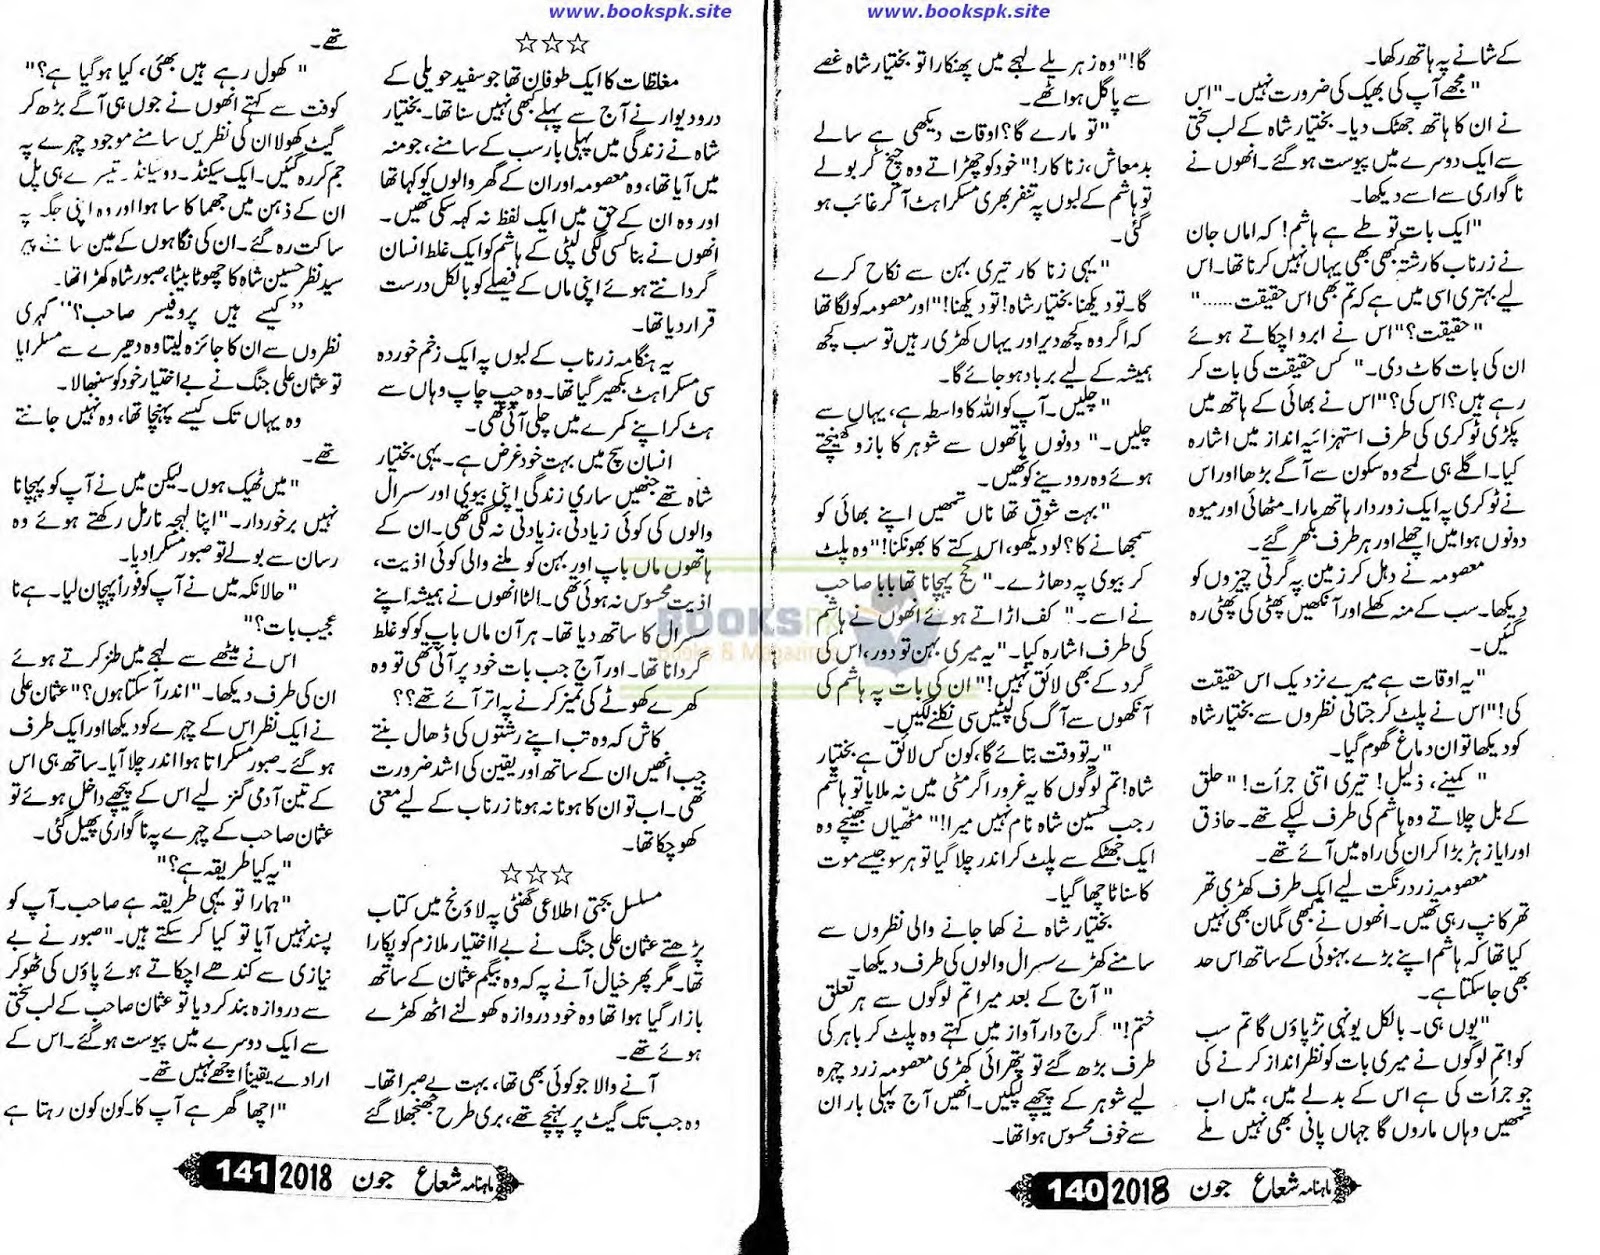 www.bookspk.site
www.bookspk.site
کے شانے پہ ہاتھ رکھا۔
"مجھے آپ کی بھیک کی ضرورت نہیں۔" اس
نے ان کا ہاتھ جھٹک دیا۔ بختیار شاہ کے لب سختی
سے ایک دوسرے میں پیوست ہو گئے۔ انھوں نے
ناگواری سے اسے دیکھا۔
"ایک بات تو طے ہے ہاشم! کہ اماں جان
نے زرناب کا رشتہ کبھی بھی یہاں نہیں کرنا تھا۔ اس
لیے بہتری اسی میں ہے کہ تم بھی اس حقیقت......"
"حقیقت؟" اس نے ابرو اچکاتے ہوئے
ان کی بات کاٹ دی۔ "کس حقیقت کی بات کر
رہے ہیں؟ اس کی؟" اس نے بھائی کے ہاتھ میں
پکڑی ٹوکری کی طرف استہزائیہ انداز میں اشارہ
کیا۔ اگلے ہی لمحے وہ سکون سے آگے بڑھا اور اس
نے ٹوکری پہ ایک زوردار ہاتھ مارا۔ مٹھائی اور میوہ
دونوں ہوا میں اچھلے اور ہر طرف بکھر گئے۔
معصومہ نے دہل کر زمین پہ گرتی چیزوں کو
دیکھا۔ سب کے منہ کھلے اور آنکھیں پھٹی کی پھٹی رہ
گئیں۔
"یہ اوقات ہے میرے نزدیک اس حقیقت
کی!" اس نے پلٹ کر جتاتی نظروں سے بختیار شاہ
کو دیکھا تو ان دماغ گھوم گیا۔
"کمینے، ذلیل! تیری اتنی جرأت!" حلق
کے بل چلاتے وہ ہاشم کی طرف لپکے تھے۔ حاذق
اور ایاز ہڑبڑا کر ان کی راہ میں آئے تھے۔
معصومہ زرد رنگت لیے ایک طرف کھڑی تھر
تھر کانپ رہی تھیں۔ انھوں نے کبھی گمان بھی نہیں
کیا تھا کہ ہاشم اپنے بڑے بہنوئی کے ساتھ اس حد
بھی جا سکتا ہے۔
"یوں ہی۔ بالکل یونہی تڑپاؤں گا تم سب
کو! تم لوگوں نے میری بات کو نظر انداز کرنے کی
جو جرأت کی ہے اس کے بدلے میں، میں اب
تمھیں وہاں ماروں گا جہاں پانی بھی نہیں ملے
گا!" وہ زہریلے لہجے میں پھنکارا تو بختیار شاہ غصے
سے پاگل ہو اٹھے۔
"تو مارے گا؟ اوقات دیکھی ہے سالے
بدمعاش، زناکار!" خود کو چھڑاتے وہ چیخ کر بولے
تو ہاشم کے لبوں پہ تنفر بھری مسکراہٹ آ کر غائب ہو
گئی۔
"یہی زناکار تیری بہن سے نکاح کرے
گا۔ تو دیکھنا بختیار شاہ! تو دیکھنا!" اور معصومہ کو لگا تھا
کہ اگر وہ کچھ دیر اور یہاں کھڑی رہیں تو سب کچھ
ہمیشہ کے لیے برباد ہو جائے گا۔
"چلیں۔ آپ کو اللہ کا واسطہ ہے، یہاں سے
چلیں۔" دونوں ہاتھوں سے شوہر کا بازو کھینچتے
ہوئے وہ رو دینے کو تھیں۔
"بہت شوق تھا ناں تمھیں اپنے بھائی کو
سمجھانے کا؟ لو دیکھو، اس کتے کا بھونکنا!" وہ پلٹ
کر بیوی پہ دھاڑے۔ "صحیح پہچانا تھا بابا صاحب
نے اسے۔" کف اڑاتے ہوئے انھوں نے ہاشم
کی طرف اشارہ کیا۔ "یہ میری بہن تو دور، اس کی
گرد کے بھی لائق نہیں!" ان کی بات پہ ہاشم کی
آنکھوں سے آگ کی لپٹیں سی نکلنے لگیں۔
"یہ تو وقت بتائے گا، کون کس لائق ہے بختیار
شاہ! تم لوگوں کا یہ غرور اگر مٹی میں نہ ملایا تو ہاشم
رجب حسین شاہ نام نہیں میرا!" مٹھیاں بھینچے وہ
ایک جھٹکے سے پلٹ کر اندر چلا گیا تو ہر سو جیسے موت
کا سناٹا چھا گیا۔
بختیار شاہ نے کھا جانے والی نظروں سے
سامنے کھڑے سسرال والوں کی طرف دیکھا۔
"آج کے بعد میرا تم لوگوں سے ہر تعلق
ختم!" گرج دار آواز میں کہتے وہ پلٹ کر باہر کی
طرف بڑھ گئے تو پتھرائی کھڑی معصومہ زرد چہرہ
لیے شوہر کے پیچھے لپکیں۔ انھیں آج پہلی بار ان
سے خوف محسوس ہوا تھا۔
ماہنامہ شعاع جون 2018 140
☆☆☆
مغلظات کا ایک طوفان تھا جو سفید حویلی کے
در و دیوار نے آج سے پہلے کبھی نہیں سنا تھا۔ بختیار
شاہ نے زندگی میں پہلی بار سب کے سامنے، جو منہ
میں آیا تھا، وہ معصومہ اور ان کے گھر والوں کو کہا تھا
اور وہ ان کے حق میں ایک لفظ نہ کہہ سکی تھیں۔
انھوں نے بنا کسی لگی لپٹی کے ہاشم کو ایک غلط انسان
گردانتے ہوئے اپنی ماں کے فیصلے کو بالکل درست
قرار دیا تھا۔
یہ ہنگامہ زرناب کے لبوں پہ ایک زخم خوردہ
سی مسکراہٹ بکھیر گیا تھا۔ وہ چپ چاپ وہاں سے
ہٹ کر اپنے کمرے میں چلی آئی تھی۔
انسان سچ میں بہت خود غرض ہے۔ یہی بختیار
شاہ تھے جنھیں ساری زندگی اپنی بیوی اور سسرال
والوں کی کوئی زیادتی، زیادتی نہ لگی تھی۔ ان کے
ہاتھوں ماں باپ اور بہن کو ملنے والی کوئی اذیت،
اذیت محسوس نہ ہوئی تھی۔ الٹا انھوں نے ہمیشہ اپنے
سسرال کا ساتھ دیا تھا۔ ہر آن ماں باپ کو کو غلط
گردانا تھا۔ اور آج جب بات خود پر آئی تھی تو وہ
کھرے کھوٹے کی تمیز کرنے پہ اتر آئے تھے؟؟
کاش کہ وہ تب اپنے رشتوں کی ڈھال بنتے
جب انھیں ان کے ساتھ اور یقین کی اشد ضرورت
تھی۔ اب تو ان کا ہونا نہ ہونا زرناب کے لیے معنی
کھو چکا تھا۔
☆☆☆
مسلسل بجتی اطلاعی گھنٹی پہ لاؤنج میں کتاب
پڑھتے عثمان علی جنگ نے بے اختیار ملازم کو پکارا
تھا۔ مگر پھر خیال آنے پہ کہ وہ بیگم عثمان کے ساتھ
بازار گیا ہوا تھا وہ خود دروازہ کھولنے اٹھ کھڑے
ہوئے تھے۔
آنے والا جو کوئی بھی تھا، بہت بے صبرا تھا۔
وہ جب تک گیٹ پر پہنچے تھے، بری طرح جھنجھلا گئے
تھے۔
"کھول رہے ہیں بھئی، کیا ہو گیا ہے؟"
کوفت سے کہتے انھوں نے جوں ہی آگے بڑھ کر
گیٹ کھولا ان کی نظریں سامنے موجود چہرے پہ
جم کر رہ گئیں۔ ایک سیکنڈ۔ دو سیکنڈ۔ تیسرے ہی پل
ان کے ذہن میں جھماکا سا ہوا اور وہ اپنی جگہ پہ
ساکت رہ گئے۔ ان کی نگاہوں کے عین سامنے پیر
سید نظر حسین شاہ کا چھوٹا بیٹا، صبور شاہ کھڑا تھا۔
"کیسے ہیں پروفیسر صاحب؟" گہری
نظروں سے ان کا جائزہ لیتا وہ دھیرے سے مسکرایا
تو عثمان علی جنگ نے بے اختیار خود کو سنبھالا۔
وہ یہاں تک کیسے پہنچا تھا، وہ نہیں جانتے
تھے۔
"میں ٹھیک ہوں۔ لیکن میں نے آپ کو پہچانا
نہیں برخوردار۔" اپنا لہجہ نارمل رکھتے ہوئے وہ
رسان سے بولے تو صبور مسکرا دیا۔
"حالانکہ میں نے آپ کو فوراً پہچان لیا۔ ہے نا
عجیب بات؟"
اس نے میٹھے سے لہجے میں طنز کرتے ہوئے
ان کی طرف دیکھا۔ "اندر آ سکتا ہوں؟" عثمان علی
نے ایک نظر اس کے چہرے کو دیکھا اور ایک طرف
ہو گئے۔ صبور مسکراتا ہوا اندر چلا آیا۔ ساتھ ہی اس
کے تین آدمی گنز لیے اس کے پیچھے داخل ہوئے تو
عثمان صاحب کے چہرے پہ ناگواری پھیل گئی۔
"یہ کیا طریقہ ہے؟"
"ہمارا تو یہی طریقہ ہے صاحب۔ آپ کو
پسند نہیں آیا تو کیا کر سکتے ہیں۔" صبور نے بے
نیازی سے کندھے اچکاتے ہوئے پاؤں کی ٹھوکر
سے دروازہ بند کر دیا تو عثمان صاحب کے لب سختی
سے ایک دوسرے میں پیوست ہو گئے۔ اس کے
ارادے یقیناً اچھے نہیں تھے۔
"اچھا گھر ہے آپ کا۔ کون کون رہتا ہے
ماہنامہ شعاع جون 2018 141
BOOKSPK
Books & Magazines